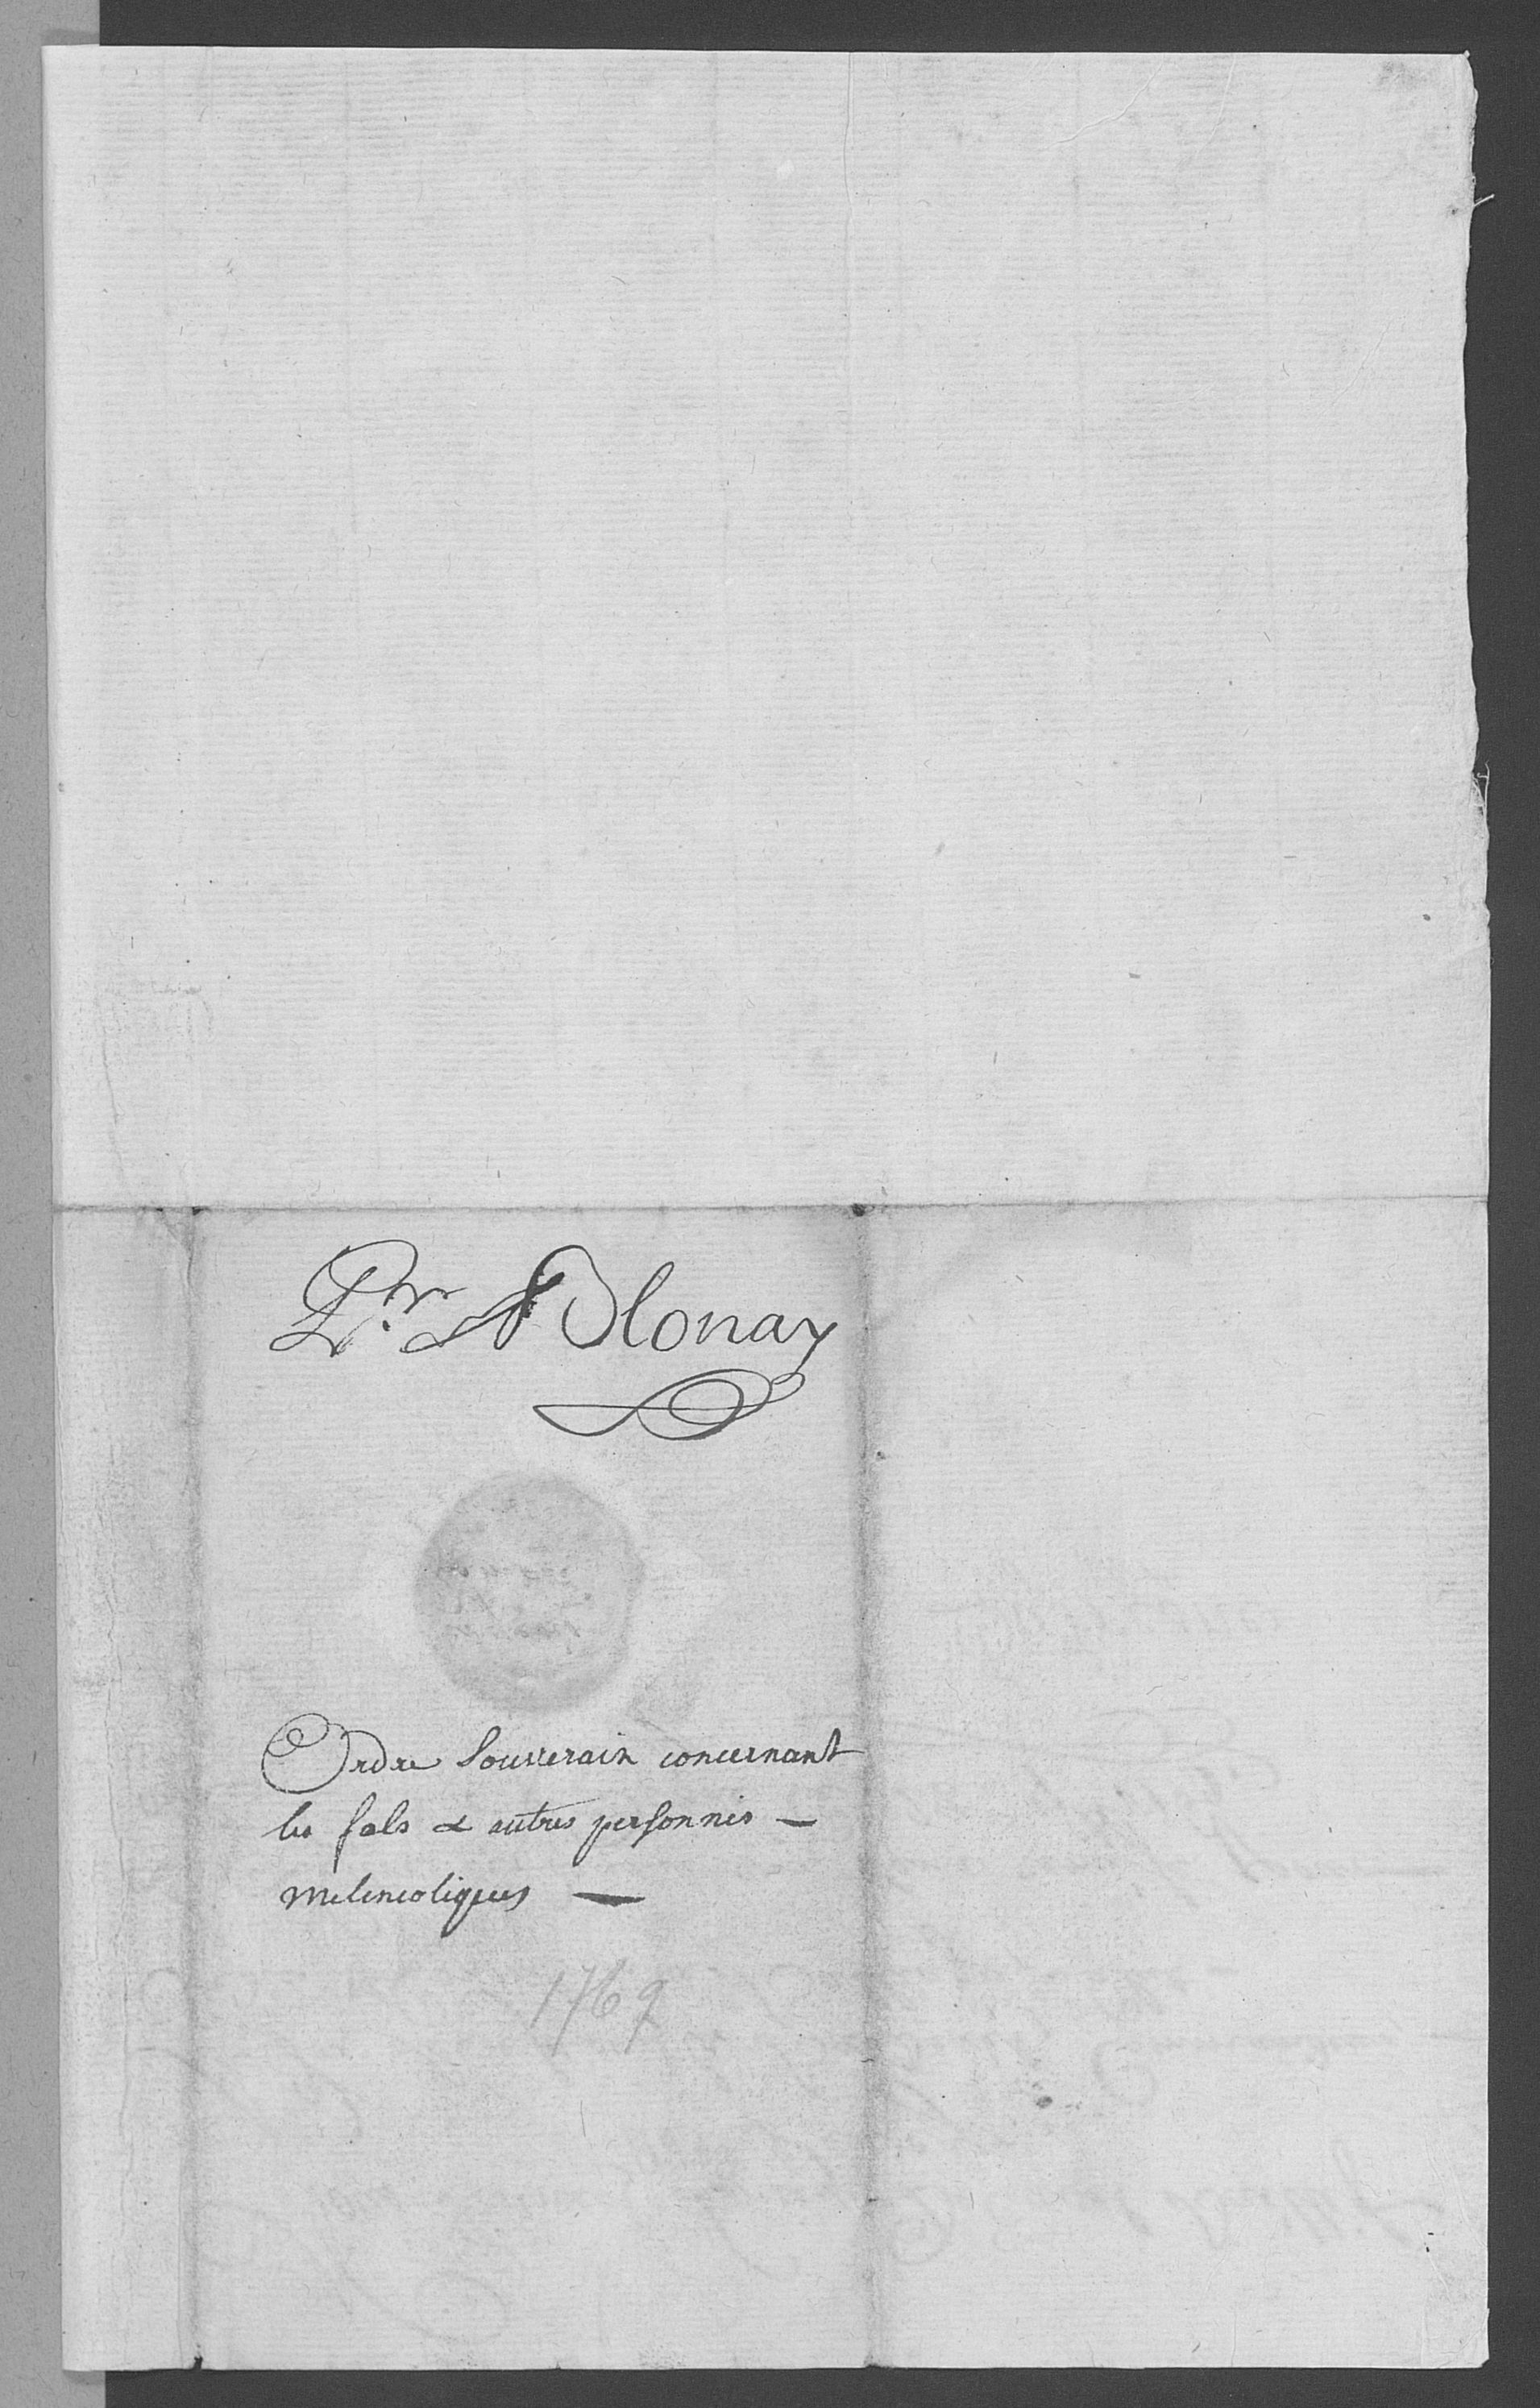 Pr. St Olonay
Ordre Souverain concernant
les fols & autres personnes —
melencoliques —
1769